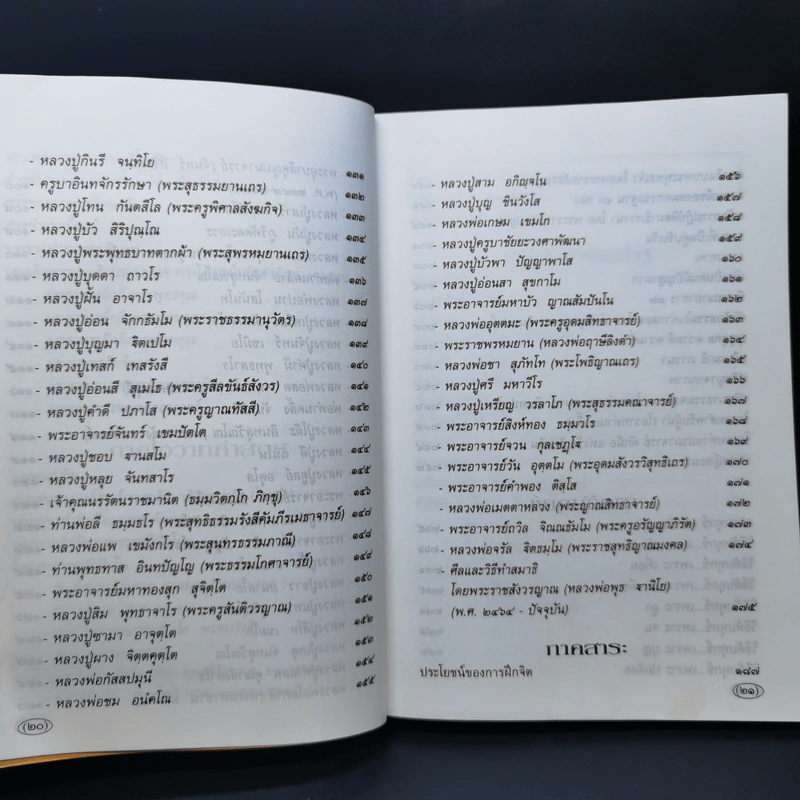 - หลวงปู่กินรี จนฺทิโย ๑๓๑
- ครูบาอินทจักรรักษา (พระสุธรรมยานเถร) ๑๓๒
- หลวงปู่โทน กันตสีโล (พระครูพิศาลสังฆกิจ) ๑๓๓
- หลวงปู่บัว สิริปุณฺโณ ๑๓๔
- หลวงปู่พระพุทธบาทตากผ้า (พระสุพรหมยานเถร) ๑๓๕
- หลวงปู่บุดดา ถาวโร ๑๓๖
- หลวงปู่ฝั้น อาจาโร ๑๓๗
- หลวงปู่อ่อน จักกธัมโม (พระราชธรรมานุวัตร) ๑๓๘
- หลวงปู่บุญมา ฐิตเปโม ๑๓๙
- หลวงปู่เทสก์ เทสรังสี ๑๔๐
- หลวงปู่อ่อนสี สุเมโธ (พระครูสีลขันธ์สังวร) ๑๔๑
- หลวงปู่คำดี ปภาโส (พระครูญาณทัสสี) ๑๔๒
- พระอาจารย์จันทร์ เขมปัตโต ๑๔๓
- หลวงปู่ชอบ ฐานสโม ๑๔๔
- หลวงปู่หลุย จันทสาโร ๑๔๕
- เจ้าคุณนรรัตนราชมานิต (ธมฺมวิตกฺโก ภิกฺขุ) ๑๔๖
- ท่านพ่อลี ธมฺมธโร (พระสุทธิธรรมรังสีคัมภีรเมธาจารย์) ๑๔๗
- หลวงพ่อแพ เขมังกโร (พระสุนทรธรรมภาณี) ๑๔๘
- ท่านพุทธทาส อินทปัญโญ (พระธรรมโกศาจารย์) ๑๔๙
- พระอาจารย์มหาทองสุก สุจิตฺโต ๑๕๐
- หลวงปู่สิม พุทธาจาโร (พระครูสันติวรญาณ) ๑๕๑
- หลวงปู่ซามา อาจุตฺโต ๑๕๒
- หลวงปู่ผาง จิตฺตคุตฺโต ๑๕๓
- หลวงพ่อกัสสปมุนี ๑๕๔
- หลวงพ่อชม อนังคโณ ๑๕๕
(๒๐)
- หลวงปู่สาม อกิญฺจโน ๑๕๖
- หลวงปู่บุญ ชินวังโส ๑๕๗
- หลวงพ่อเกษม เขมโก ๑๕๘
- หลวงปู่ครูบาชัยยะวงศาพัฒนา ๑๕๙
- หลวงปู่บัวพา ปัญญาพาโส ๑๖๐
- หลวงปู่อ่อนสา สุขกาโม ๑๖๑
- พระอาจารย์มหาบัว ญาณสัมปันโน ๑๖๒
- หลวงพ่ออุตตมะ (พระครูอุดมสิทธาจารย์) ๑๖๓
- พระราชพรหมยาน (หลวงพ่อฤาษีลิงดำ) ๑๖๔
- หลวงพ่อชา สุภัทโท (พระโพธิญาณเถร) ๑๖๕
- หลวงปู่ศรี มหาวีโร ๑๖๖
- หลวงปู่เหรียญ วรลาโภ (พระสุธรรมคณาจารย์) ๑๖๗
- พระอาจารย์สิงห์ทอง ธมฺมวโร ๑๖๘
- พระอาจารย์จวน กุลเชฏฺโฐ ๑๖๙
- พระอาจารย์วัน อุตฺตโม (พระอุดมสังวรวิสุทธิเถร) ๑๗๐
- พระอาจารย์คำพอง ติสฺโส ๑๗๑
- หลวงพ่อเมตตาหลวง (พระญาณสิทธาจารย์) ๑๗๒
- พระอาจารย์ถวิล จิณณธัมโม (พระครูอรัญญาภิรัต) ๑๗๓
- หลวงพ่อจรัล ฐิตธมฺโม (พระราชสุทธิญาณมงคล) ๑๗๔
- ศีลและวิธีทำสมาธิ
โดยพระราชสังวรญาณ (หลวงพ่อพุธ ฐานิโย)
(พ.ศ. ๒๔๖๔ - ปัจจุบัน) ๑๗๕
ภาคสาระ
ประโยชน์ของการฝึกจิต ๑๘๗
(๒๑)